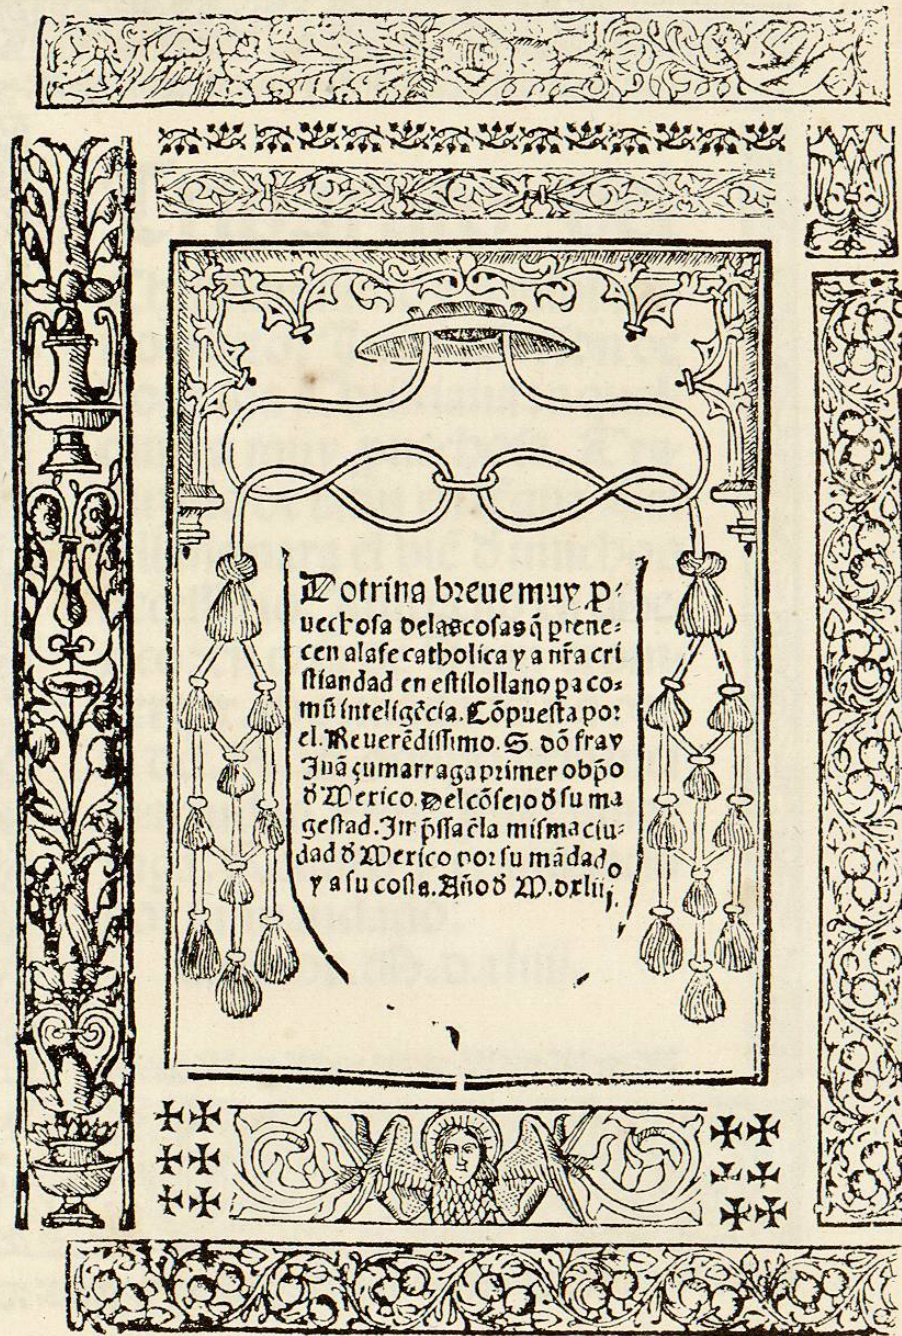 Dotrina breue muy ꝓ-
uechosa delas cosas q̃ ꝑtene-
cen ala fe catholica y a nr̃a cri
stiandad en estilo llano ꝑa co-
mũ inteligẽcia. Cõpuesta por
el. Reuerẽdissimo. S. dõ fray
Juã çumarraga primer obp̃o
đ Mexico. Del cõsejo đ su ma
gestad. Impͥssa ẽla misma ciu-
dad đ Mexico por su mãdado
y a su costa. Año đ M.dxliij